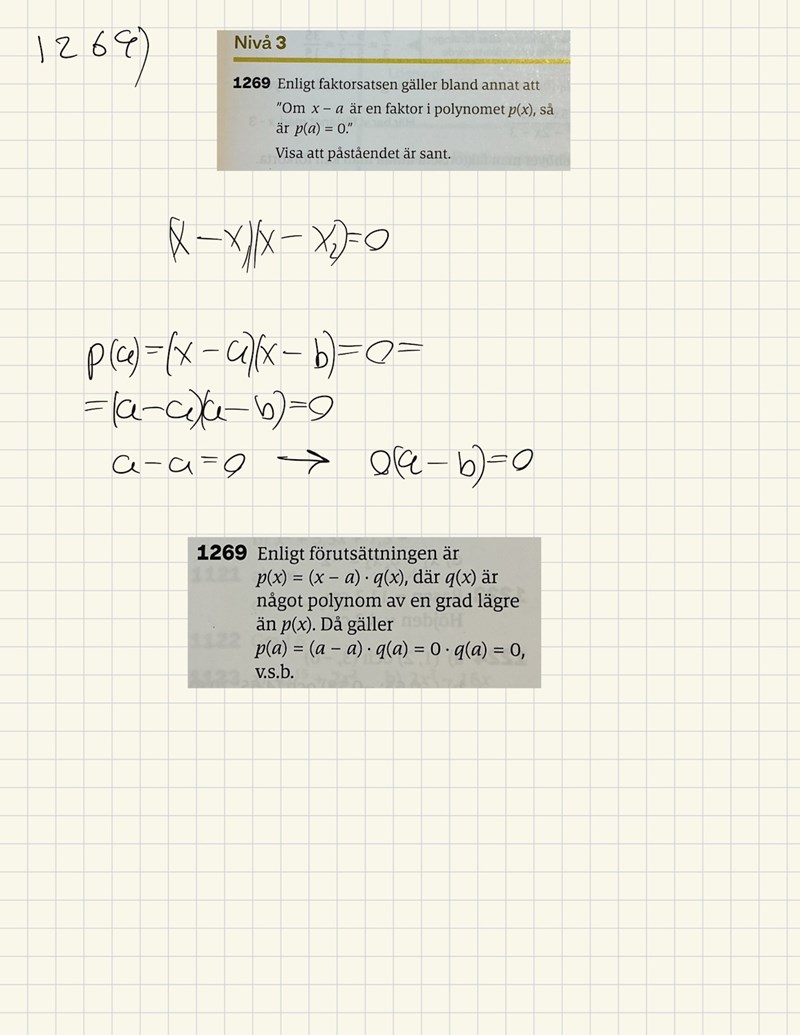 1269)
Nivå 3
1269 Enligt faktorsatsen gäller bland annat att
"Om x – a är en faktor i polynomet p(x), så
är p(a) = 0."
Visa att påståendet är sant.
(x – x₁)(x – x₂) = 0
p(a) = (x – a)(x – b) = 0 =
= (a – a)(a – b) = 0
a – a = 0 → 0(a – b) = 0
1269 Enligt förutsättningen är
p(x) = (x – a) · q(x), där q(x) är
något polynom av en grad lägre
än p(x). Då gäller
p(a) = (a – a) · q(a) = 0 · q(a) = 0,
v.s.b.